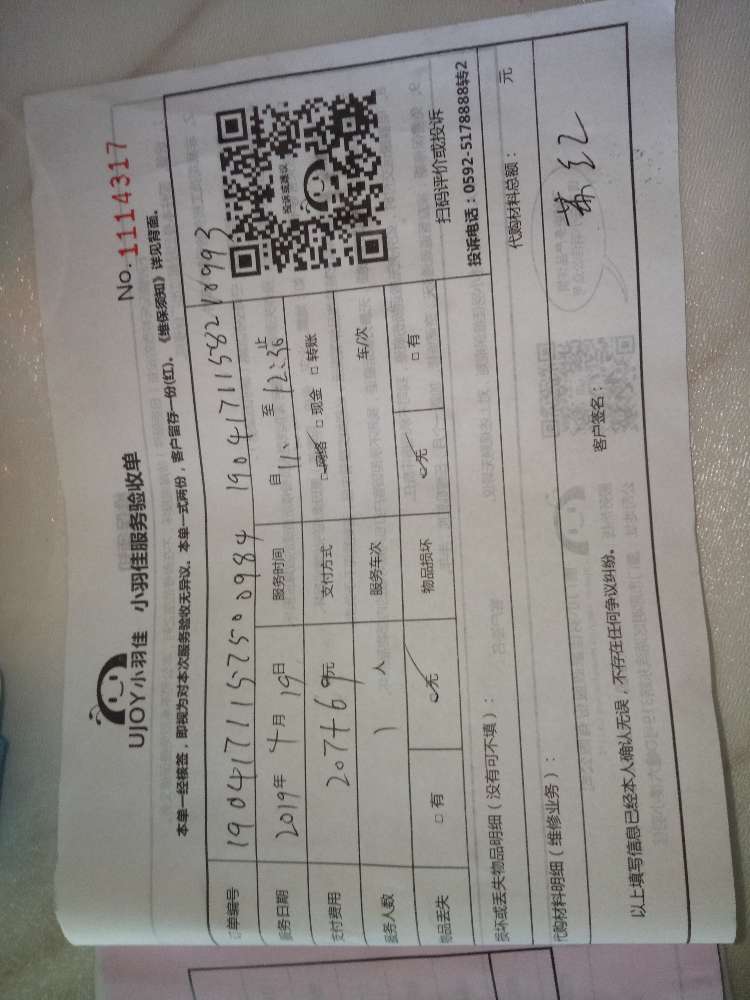 No. 1114317
UJOY小羽佳 小羽佳服务验收单
本单一经核签，即视为对本次服务验收无异议。本单一式两份，客户留存一份(红)。《维保须知》详见背面。
订单编号 190417115750 0984 190417115821 0993
服务日期 2019年 4月 19日 服务时间 自 11、 至 12:36 止
支付费用 207+69元 支付方式 网络 □ 现金 □ 转账
服务人数 1 人 服务车次 车/次
物品丢失 □ 有 无 物品损坏 无 □ 有
投诉或建议
扫码评价或投诉
投诉电话：0592-5178888转2
损坏或丢失物品明细（没有可不填）：
代购材料明细（维修业务）： 代购材料总额： 元
以上填写信息已经本人确认无误，不存在任何争议纠纷。 客户签名：